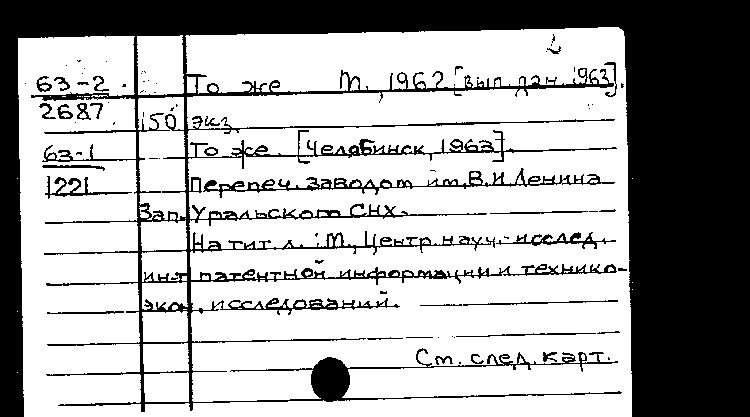 2
63-2. То же М., 1962 [вып. дан. 1963].
2687 150 экз.
63-1 То же. [Челябинск, 1963].
1221 Перепеч. заводом им. В.И. Ленина
Зап. Уральского СНХ.
На тит. л.: М., Центр. науч.-исслед.
ин-т патентной информации и технико-
экон. исследований.
См. след. карт.